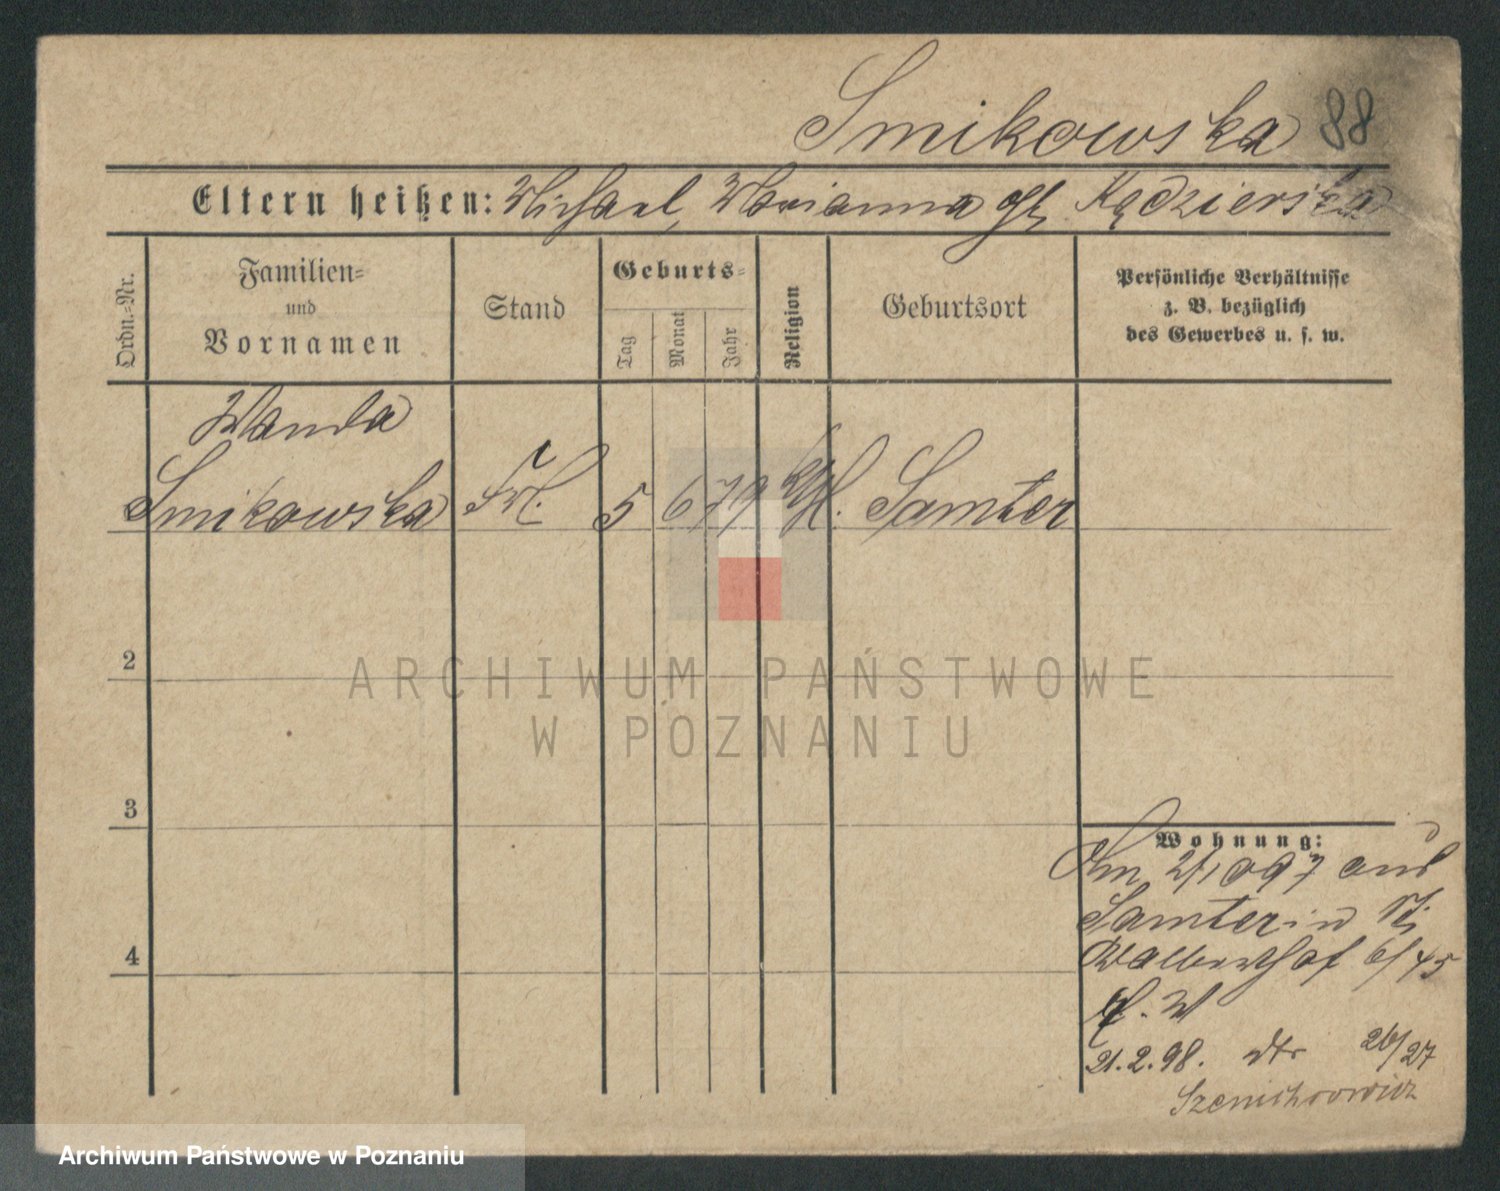 Smikowska 88
Eltern heißen: Michael, Marianna gb Kędzierska
Ordn.=Nr.
Familien=
und
Vornamen
Stand
Geburts=
Tag
Monat
Jahr
Religion
Geburtsort
Persönliche Verhältnisse
z. B. bezüglich
des Gewerbes u. s. w.
Wanda
Smikowska Frl. 5 6 79 kth. Samter
2
3
4
Wohnung:
Am 2/10 97 aus
Samter in
6/45
21.2.98. dto 26/27
ARCHIWUM PAŃSTWOWE
W POZNANIU
Archiwum Państwowe w Poznaniu